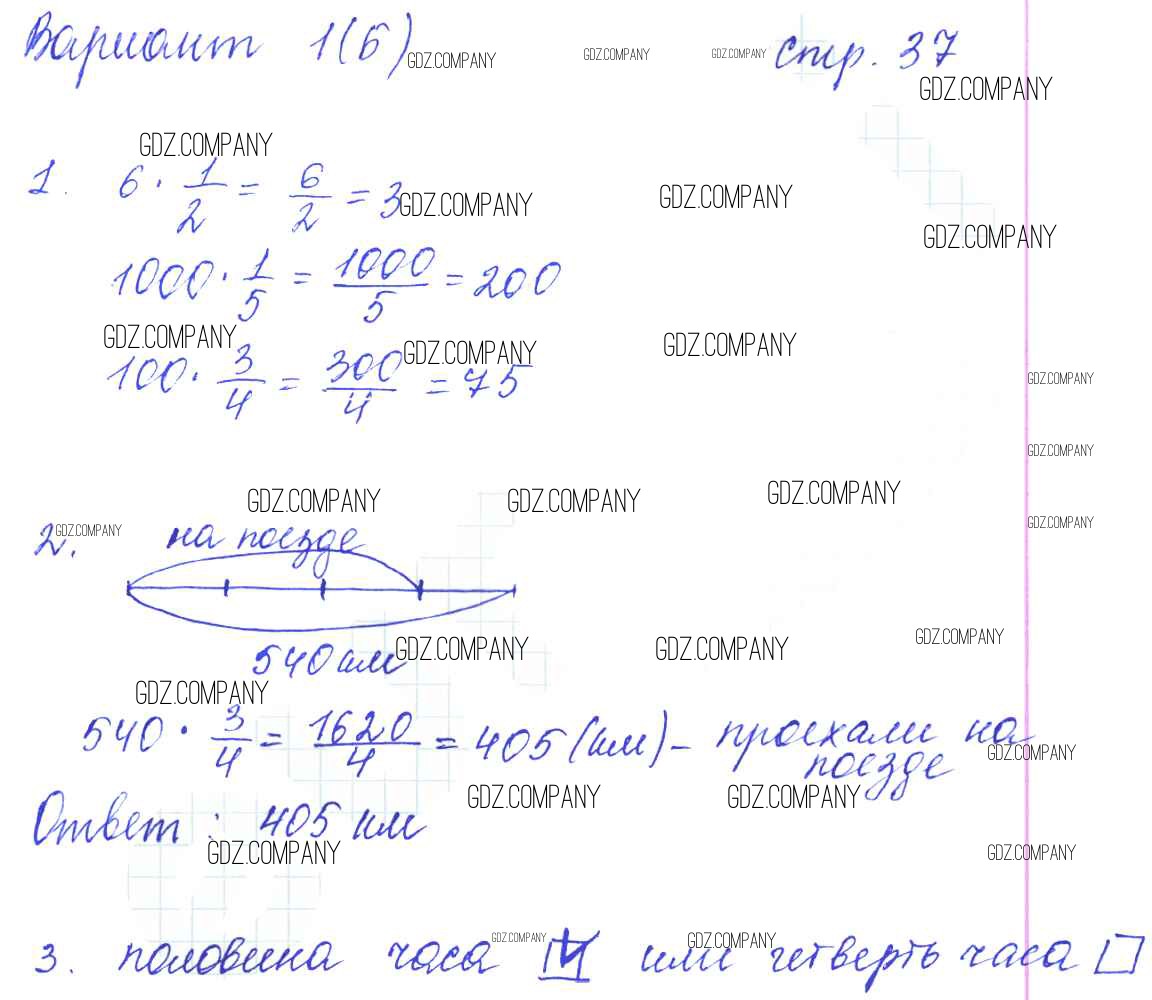 Вариант 1(б) GDZ.COMPANY GDZ.COMPANY GDZ.COMPANY стр. 37
GDZ.COMPANY
GDZ.COMPANY
1. 6 · 1/2 = 6/2 = 3 GDZ.COMPANY GDZ.COMPANY
GDZ.COMPANY
1000 · 1/5 = 1000/5 = 200
GDZ.COMPANY GDZ.COMPANY GDZ.COMPANY
100 · 3/4 = 300/4 = 75
GDZ.COMPANY
GDZ.COMPANY
GDZ.COMPANY GDZ.COMPANY GDZ.COMPANY
GDZ.COMPANY
2. GDZ.COMPANY на поезде
540 км GDZ.COMPANY GDZ.COMPANY GDZ.COMPANY
GDZ.COMPANY
540 · 3/4 = 1620/4 = 405 (км) – проехали на
поезде GDZ.COMPANY
GDZ.COMPANY GDZ.COMPANY
Ответ : 405 км
GDZ.COMPANY GDZ.COMPANY
GDZ.COMPANY GDZ.COMPANY
3. половина часа или четверть часа